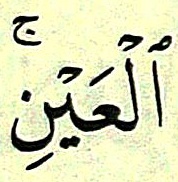 ٱلْعَيْنِۚ